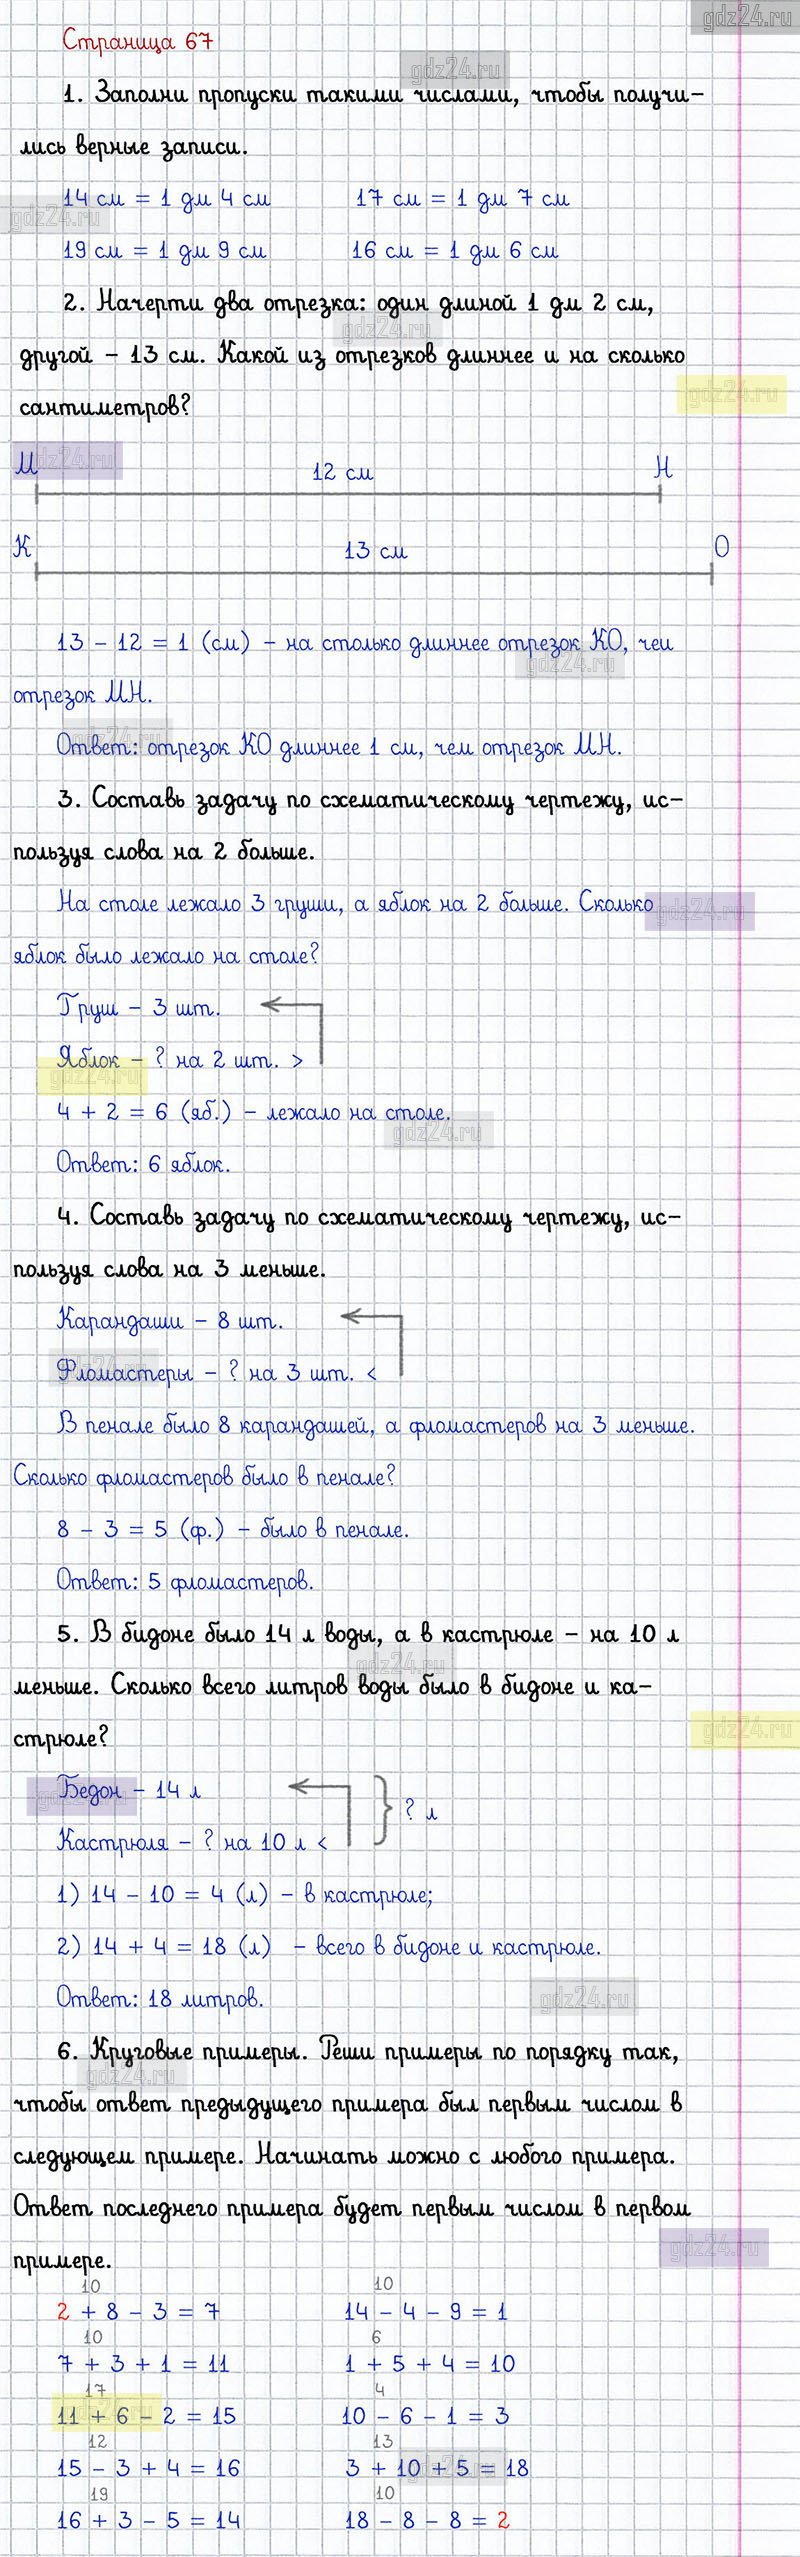 gdz24.ru
Страница 67
gdz24.ru
1. Заполни пропуски такими числами, чтобы получи-
лись верные записи.
14 см = 1 дм 4 см 17 см = 1 дм 7 см
gdz24.ru
19 см = 1 дм 9 см 16 см = 1 дм 6 см
2. Начерти два отрезка: один длиной 1 дм 2 см,
gdz24.ru
другой – 13 см. Какой из отрезков длиннее и на сколько
gdz24.ru
сантиметров?
gdz24.ru
М 12 см Н
К 13 см О
13 – 12 = 1 (см) – на столько длиннее отрезок КО, чем
gdz24.ru
отрезок МН.
gdz24.ru
Ответ: отрезок КО длиннее 1 см, чем отрезок МН.
3. Составь задачу по схематическому чертежу, ис-
пользуя слова на 2 больше.
На столе лежало 3 груши, а яблок на 2 больше. Сколько
gdz24.ru
яблок было лежало на столе?
Груш – 3 шт.
Яблок – ? на 2 шт. >
gdz24.ru
4 + 2 = 6 (яб.) – лежало на столе.
gdz24.ru
Ответ: 6 яблок.
4. Составь задачу по схематическому чертежу, ис-
пользуя слова на 3 меньше.
Карандаши – 8 шт.
gdz24.ru
Фломастеры – ? на 3 шт. <
В пенале было 8 карандашей, а фломастеров на 3 меньше.
Сколько фломастеров было в пенале?
8 – 3 = 5 (ф.) – было в пенале.
Ответ: 5 фломастеров.
5. В бидоне было 14 л воды, а в кастрюле – на 10 л
gdz24.ru
меньше. Сколько всего литров воды было в бидоне и ка-
стрюле?
gdz24.ru
Бедон – 14 л
gdz24.ru
? л
Кастрюля – ? на 10 л <
1) 14 – 10 = 4 (л) – в кастрюле;
2) 14 + 4 = 18 (л) – всего в бидоне и кастрюле.
Ответ: 18 литров.
gdz24.ru
6. Круговые примеры. Реши примеры по порядку так,
gdz24.ru
чтобы ответ предыдущего примера был первым числом в
следующем примере. Начинать можно с любого примера.
Ответ последнего примера будет первым числом в первом
gdz24.ru
примере.
10 10
2 + 8 – 3 = 7 14 – 4 – 9 = 1
10 6
7 + 3 + 1 = 11 1 + 5 + 4 = 10
17 4
11 + 6 – 2 = 15 10 – 6 – 1 = 3
gdz24.ru
12 13
15 – 3 + 4 = 16 3 + 10 + 5 = 18
gdz24.ru
19 10
16 + 3 – 5 = 14 18 – 8 – 8 = 2